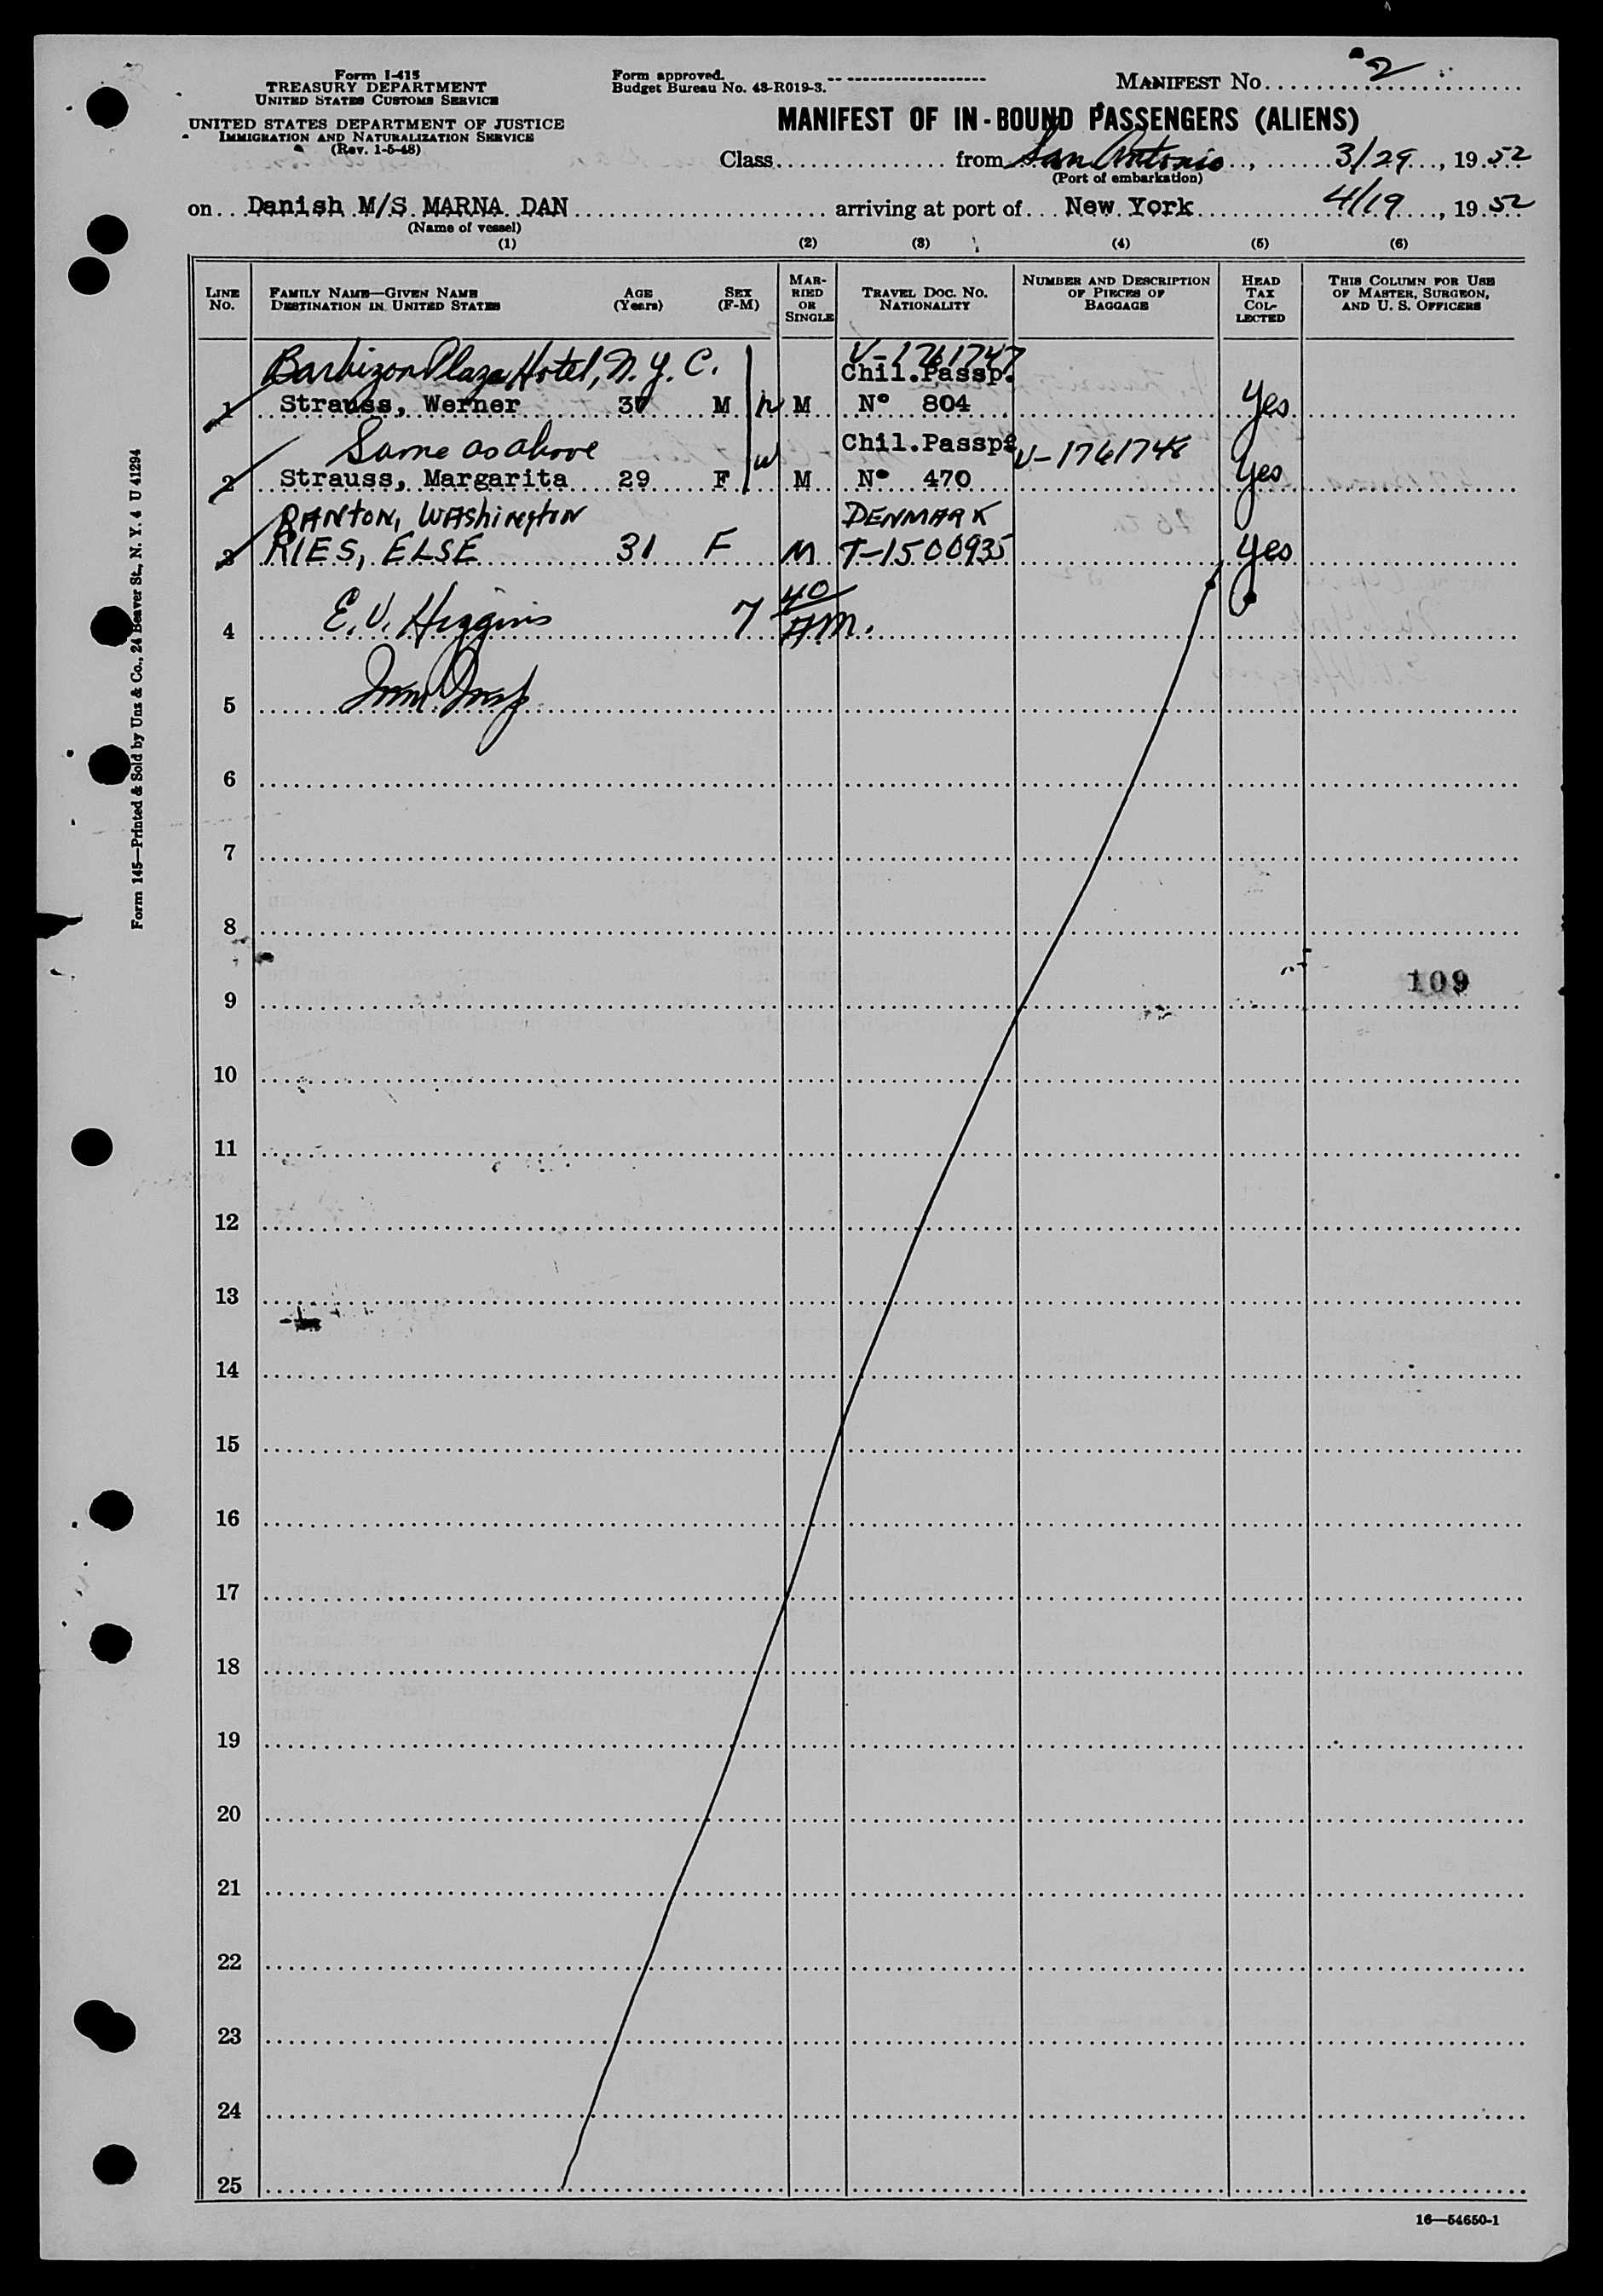 Form I-415
TREASURY DEPARTMENT
UNITED STATES CUSTOMS SERVICE
UNITED STATES DEPARTMENT OF JUSTICE
IMMIGRATION AND NATURALIZATION SERVICE
(Rev. 1-5-48)
Form approved.
Budget Bureau No. 43-R019-3.
MANIFEST No. 2
MANIFEST OF IN-BOUND PASSENGERS (ALIENS)
Class from San Antonio, 3/29, 1952
(Port of embarkation)
on Danish M/S MARNA DAN arriving at port of New York 4/19, 1952
(Name of vessel)
(1) (2) (3) (4) (5) (6)
LINE NO.
FAMILY NAME—GIVEN NAME
DESTINATION IN UNITED STATES
AGE (Years)
SEX (F-M)
MARRIED OR SINGLE
TRAVEL DOC. NO. NATIONALITY
NUMBER AND DESCRIPTION OF PIECES OF BAGGAGE
HEAD TAX COLLECTED
THIS COLUMN FOR USE OF MASTER, SURGEON, AND U. S. OFFICERS
Barbizon Plaza Hotel, N.Y.C. V-1761747
Chil.Passp.
1 Strauss, Werner M h M Nº 804 Yes
Same as above Chil.Passp. V-1761748
2 Strauss, Margarita 29 F w M Nº 470 Yes
Washington DENMARK
3 RIES, ELSE 31 F M T-1500935 Yes
4 E. V. Higgins 7 40 A.M.
5 Imm. Insp
6
7
8
9
109
10
11
12
13
14
15
16
17
18
19
20
21
22
23
24
25
16—54650-1
Form 145—Printed & Sold by Unz & Co., 24 Beaver St., N. Y. 4 U 41294